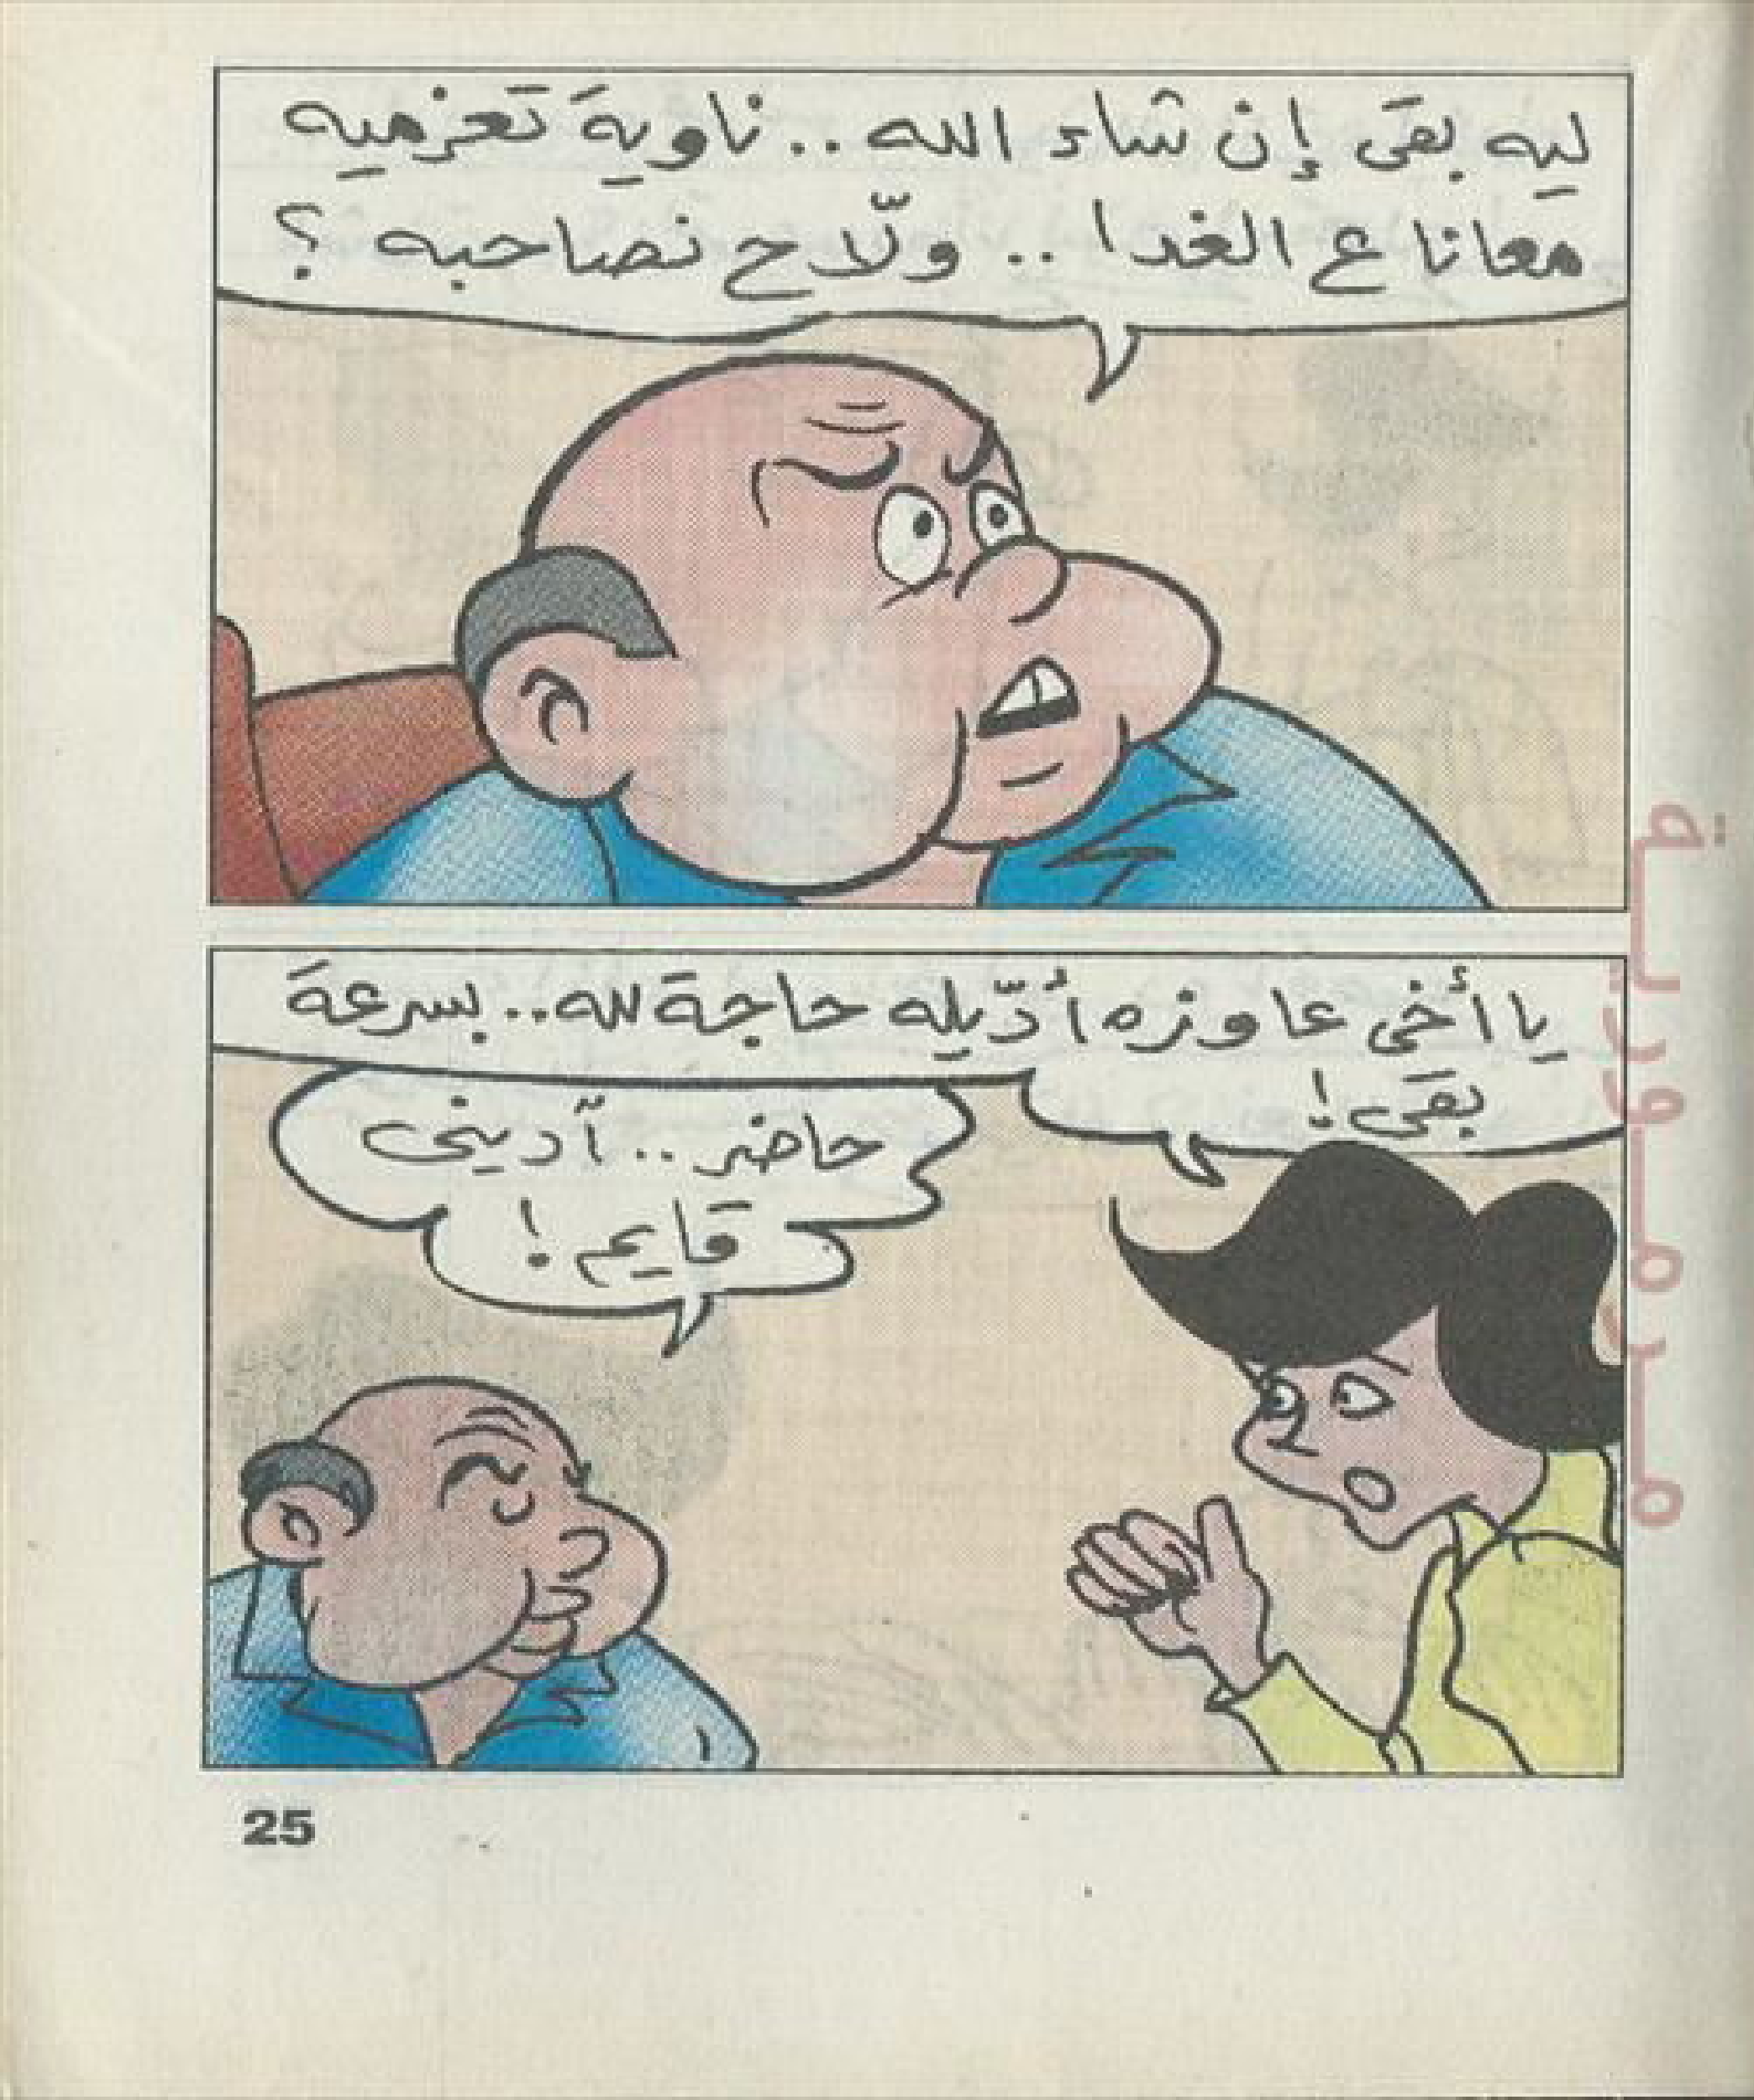 ليه بقى إن شاء الله .. ناوية تعزميه
معانا ع الغدا .. ولّا ح نصاحبه ؟
يا أخى عاوزه أدّيله حاجة لله .. بسرعة
بقى !
حاضر .. آدينى
قايم !
25